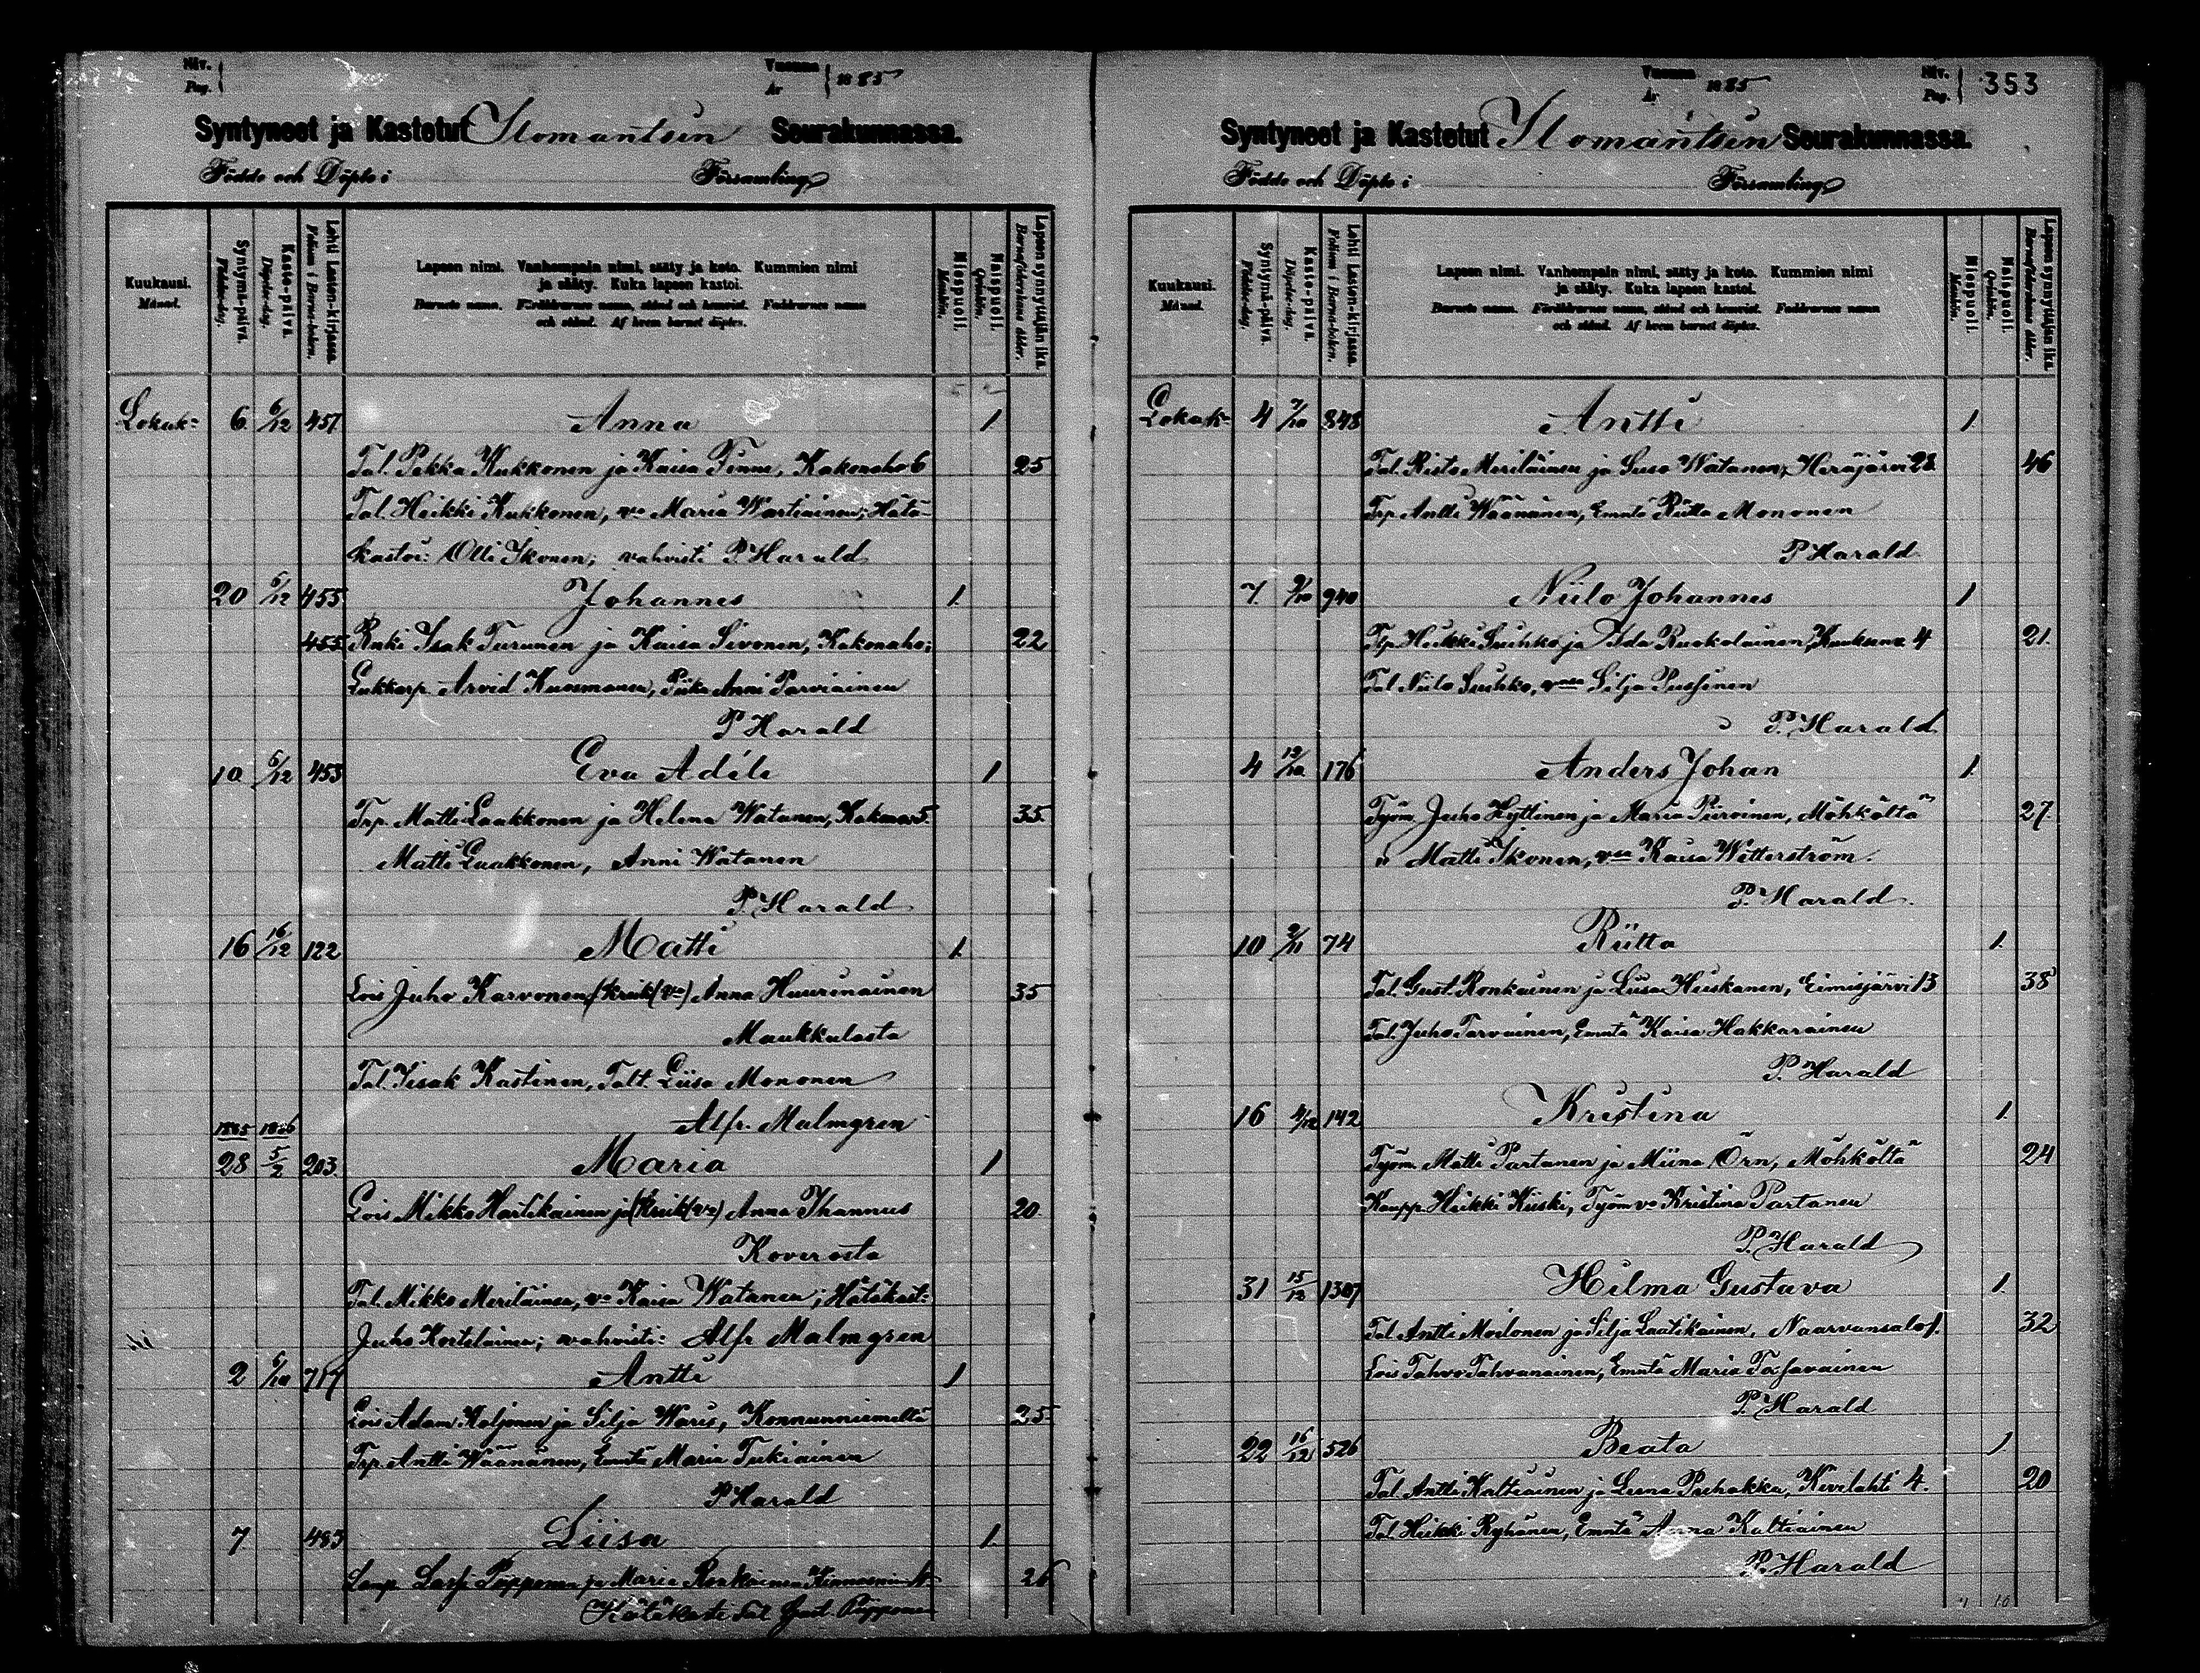 Siv. Pag.
Vuonna År 1885
Syntyneet ja Kastetut Ilomantsin Seurakunnassa.
Födde och Döpte i Församling
Kuukausi. Månad.
Syntymä-päivä. Födelse-dag.
Kaste-päivä. Döpelse-dag.
Lehti Lasten-kirjassa Folium i Barna-boken.
Lapsen nimi. Vanhempain nimi, sääty ja koto. Kummien nimi
ja sääty. Kuka lapsen kastoi.
Barnets namn. Föräldrarnes namn, stånd och hemvist. Faddrarnes namn
och stånd. Af hvem barnet döptes.
Miespuoli. Mankön.
Naispuoli. Qvinkön.
Lapsen synnyttäjän ikä. Barnaföderskans ålder.
Lokak= 6 6/12 457 Anna 1
Tal. Pekka Kukkonen ja Kaisa Tinnu, Kakonaho 6 25
Tal. Heikki Kukkonen, vo Maria Wartiainen; Hätä-
kastoi: Olli Ikonen; vahvisti P. Harald
20 6/12 455 Johannes 1.
455 Renki Isak Turunen ja Kaisa Sivonen, Kakonaho; 22
Lukkarp. Arvid Kuosmanen, Piika Anni Parviainen
P Harald
10 6/12 453 Eva Adéle 1
Trp. Matti Laakkonen ja Helena Watanen, Kakonaho 5. 35
Matti Laakkonen, Anni Watanen
P. Harald
16 16/12 122 Matti 1.
Lois Juho Karvonen (kreik (vo) Anna Huurinainen 35
Maukkulasta
Tal. Iisak Kastinen, Talt. Liisa Mononen
Alfr. Malmgren
1885 1886
28 5/2 203. Maria 1
Lois Mikko Hartikainen ja (kreik (vo) Anna Ihannus 20
Koverosta
Tal. Mikko Meriläinen, vo Kaisa Watanen; Hätäkast:
Juho Kortelainen; vahvisti: Alfr Malmgren
2 6/10 717 Antti 1
Lois Adam Koljonen ja Silja Waris, Konnunniemeltä 25
Trp. Antti Wäänänen, Emntä Maria Tukiainen
P Harald
7 483 Liisa 1.
Lamp. Lasse Piipponen ja Maria Ronkainen 26
Hätäkasti Tal Gust. Piipponen
Vuonna År 1885
Siv. Pag. 353
Syntyneet ja Kastetut Ilomantsin Seurakunnassa.
Födde och Döpte i Församling
Kuukausi. Månad.
Syntymä-päivä. Födelse-dag.
Kaste-päivä. Döpelse-dag.
Lehti Lasten-kirjassa Folium i Barna-boken.
Lapsen nimi. Vanhempain nimi, sääty ja koto. Kummien nimi
ja sääty. Kuka lapsen kastoi.
Barnets namn. Föräldrarnes namn, stånd och hemvist. Faddrarnes namn
och stånd. Af hvem barnet döptes.
Miespuoli. Mankön.
Naispuoli. Qvinkön.
Lapsen synnyttäjän ikä. Barnaföderskans ålder.
Lokak= 4 7/10 848 Antti 1.
Tal. Risto Meriläinen ja Suso Watanen, Heräjärvi 28. 46
Trp Antti Wäänänen, Emntä Riitta Mononen
P Harald
7. 9/10 940 Niilo Johannes 1
Trp. Heikki Suihko ja Ida Ruokolainen, Kuuksenv. 4 21.
Tal Niilo Suihko, vmo Silja Pussinen
P. Harald
4 12/10 176 Anders Johan 1.
Työm. Juho Hyttinen ja Maria Piiroinen, Möhköltä 27.
" Matti Ikonen, vmo Kaisa Witterström.
P. Harald.
10 2/11 74 Riitta 1.
Tal. Gust. Ronkainen ja Liisa Hiiskanen, Eimisjärvi 13 38
Tal. Juho Tarvainen, Emntä Kaisa Hakkarainen
P. Harald
16 4/12 142 Kristina 1.
Työm Matti Partanen ja Miina Örn, Möhköltä 24
Kaupp. Heikki Kiiski, Työm vo Kristina Partanen
P. Harald
31 15/12 1307 Hilma Gustava 1.
Tal Antti Moilonen ja Silja Laatikainen, Naarvansalo 1. 32
Lois Tahvo Tahvanainen, Emntä Maria Tossavainen
P. Harald
22 16/12 526 Beata 1
Tal. Antti Kaltiainen ja Leena Puhakka, Kivilahti 4. 20
Tal. Heikki Ryhänen, Emntä Anna Kaltiainen
P. Harald
10